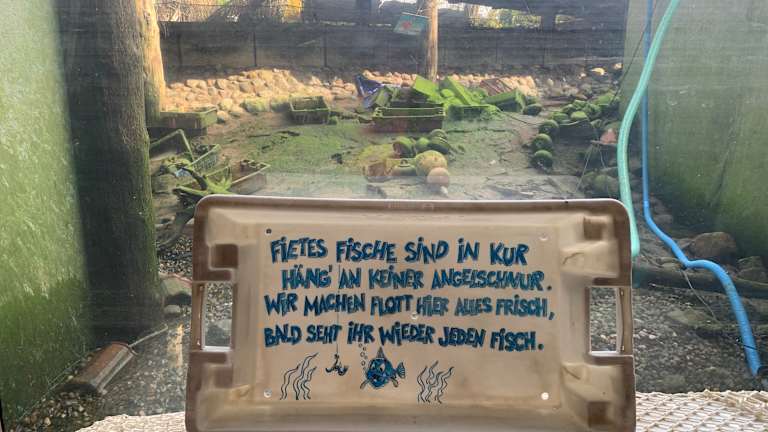 FIETES FISCHE SIND IN KUR
HÄNG' AN KEINER ANGELSCHNUR.
WIR MACHEN FLOTT HIER ALLES FRISCH,
BALD SEHT IHR WIEDER JEDEN FISCH.